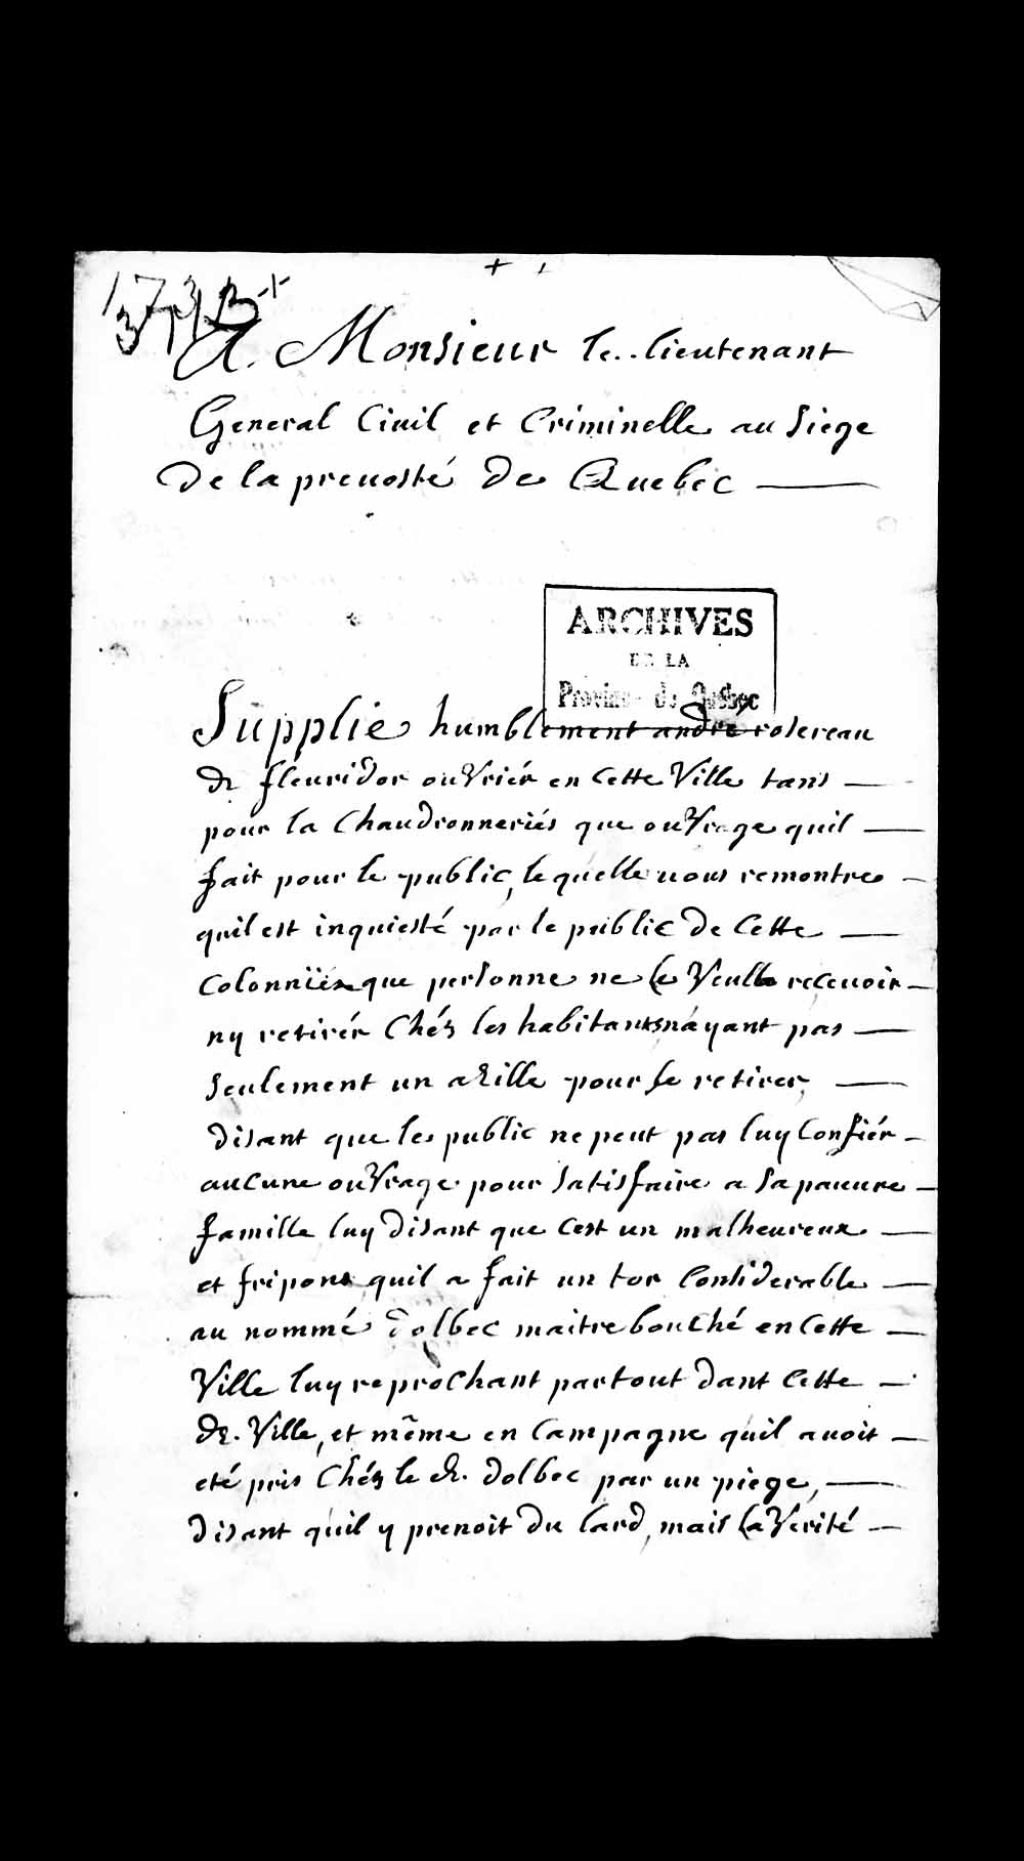 A. Monsieur le..lieutenant
General Ciuil et Criminelle au Siege
De la preuosté De Quebec
ARCHIVES
DE LA
Province de Québec
Supplie humblement andré rosereau
dt fleuridor ouVriér en Cette Ville tans
pour la Chaudronneriés que ouVrage quil
fait pour le public, le quelle uous remontre
quil est inquiesté par le public De Cette
Colonniée que personne ne le Veulle receuoir
ny retirér Chéz les habitants nayant pas
seulement un azille pour se retirer,
Disant que le public ne peut pas luy Confiér
aucune ouVrage pour Satisfaire a Sa pauure
famille luy Disant que Cest un malheureux
et fripons quil a fait un tor Considerable
au nommé Dolbec maitre bouché en Cette
Ville luy reprochant partout Dant Cette
de. Ville, et même en Campagne quil auoit
eté pris Chéz le dt. Dolbec par un piege,
Disant quil y prenoit Du lard, mais la Verité